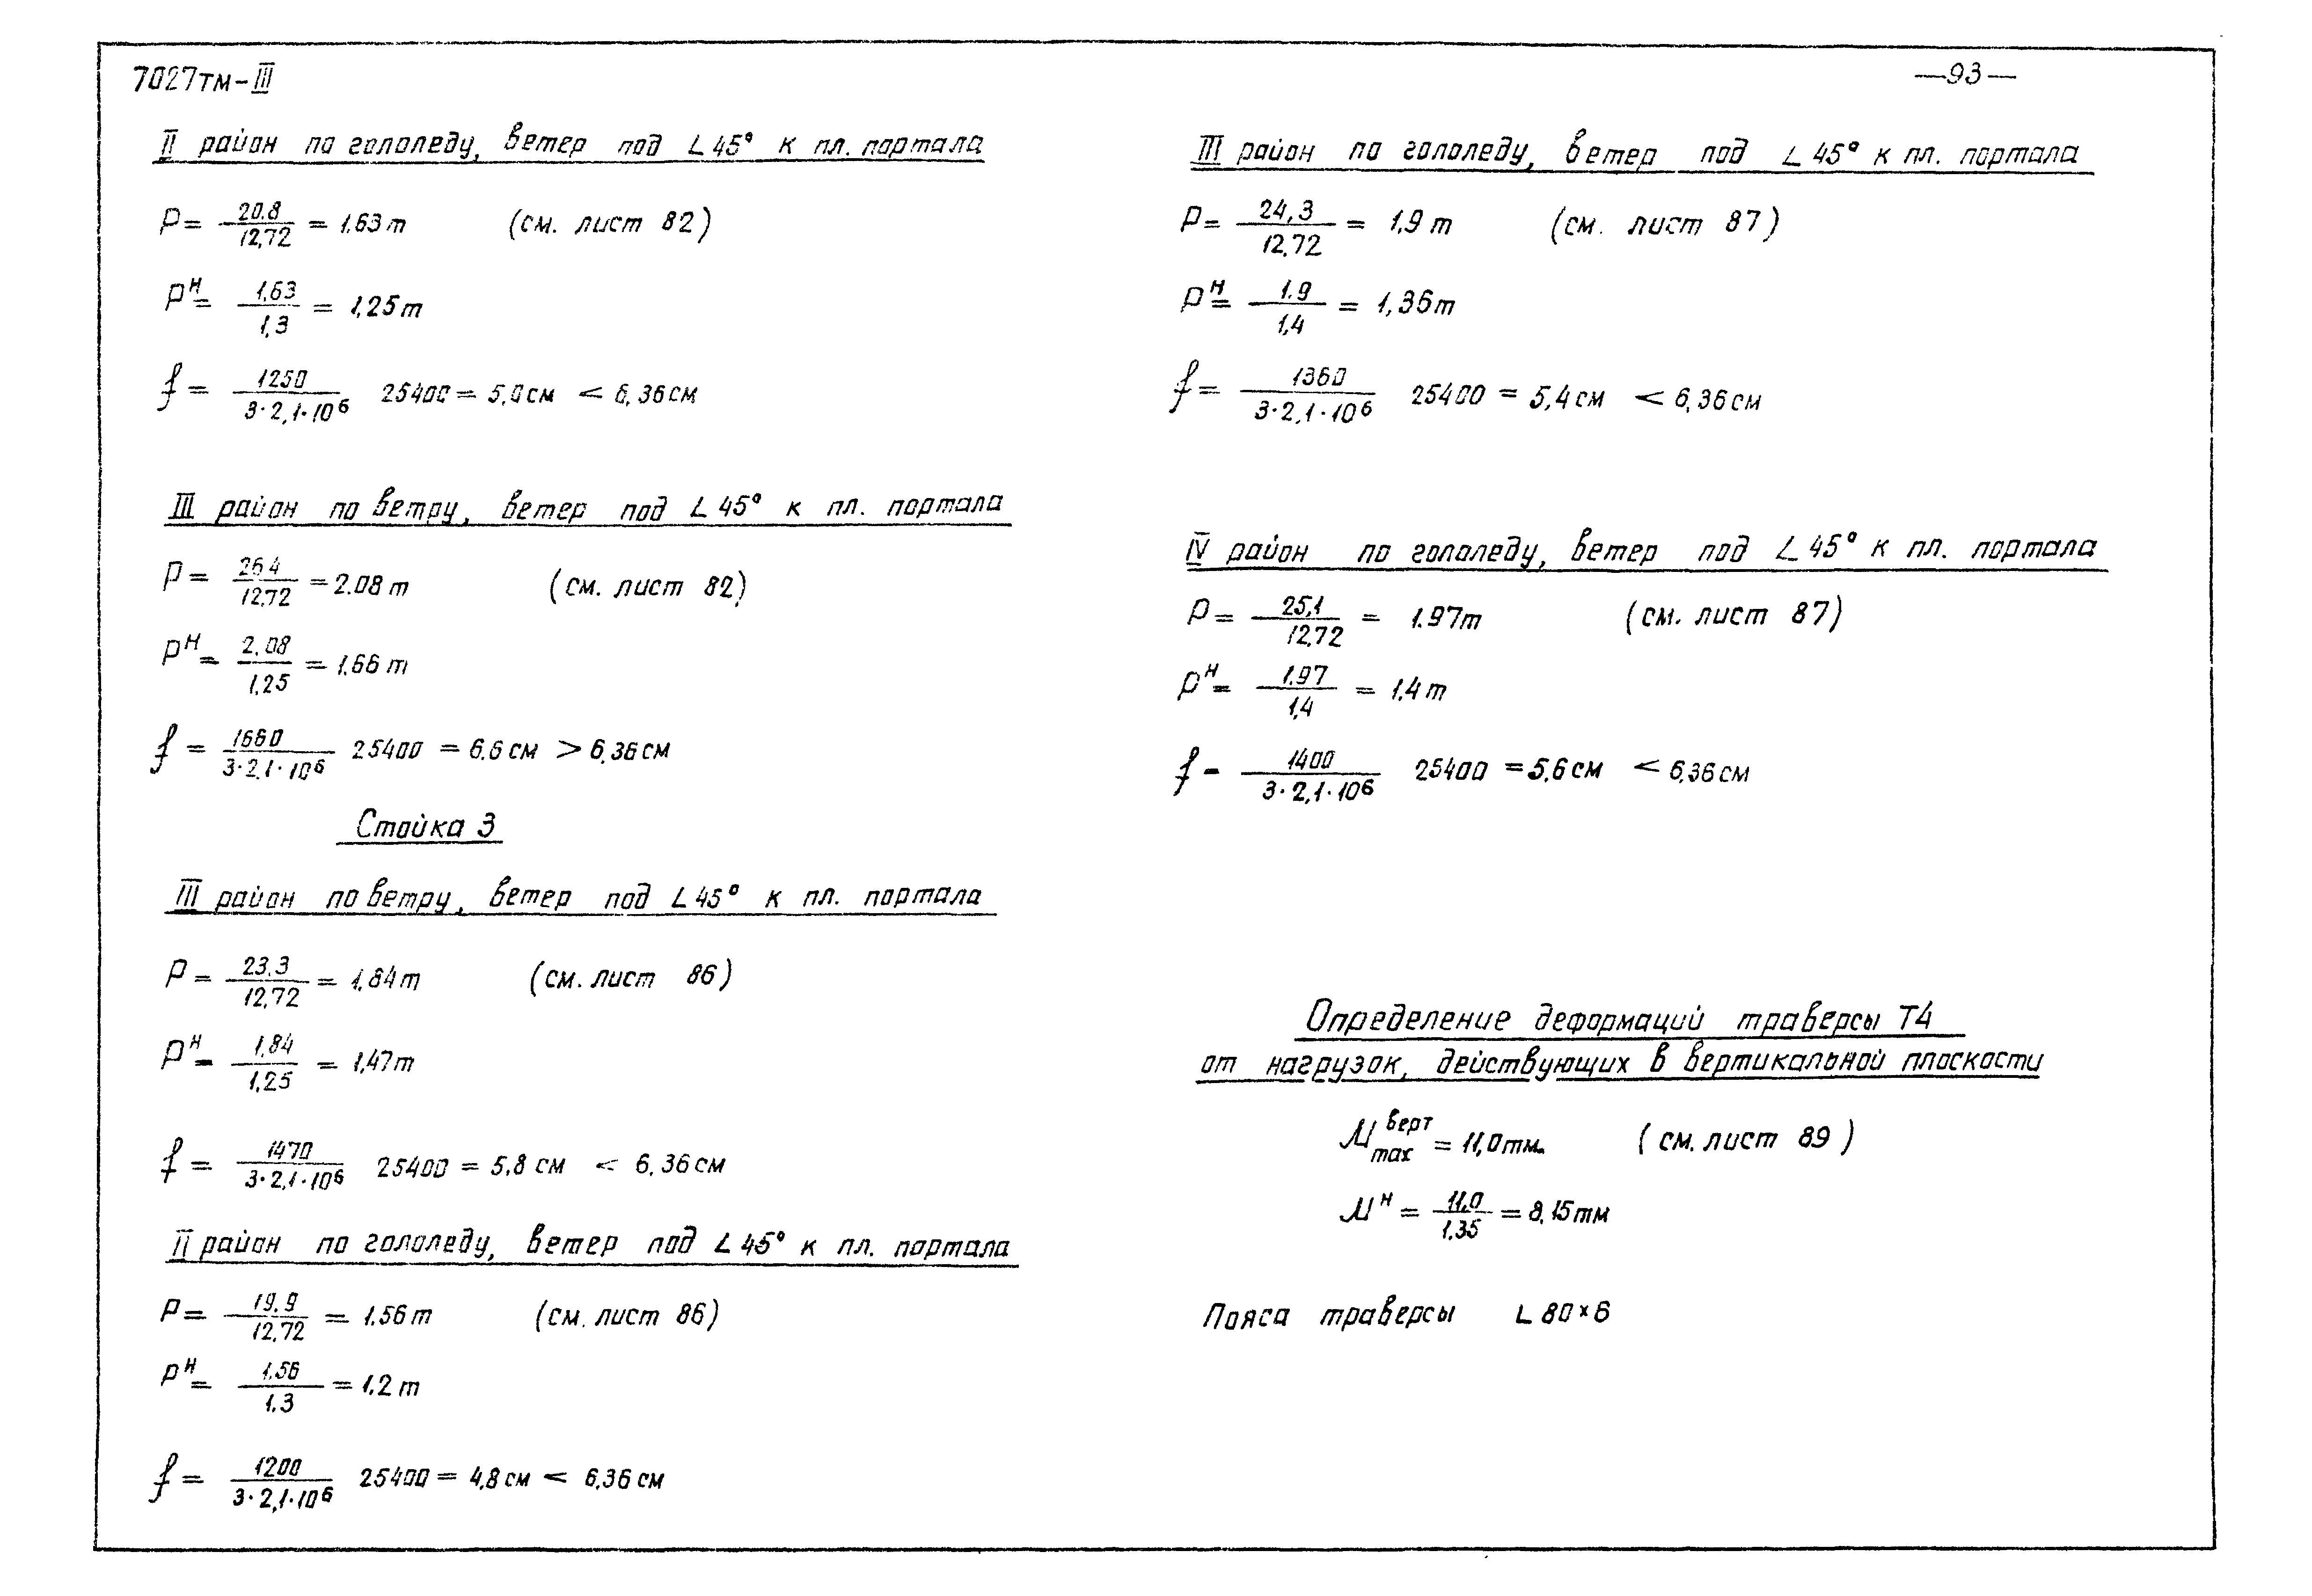 7027тм-III
—93—
II район по гололеду, ветер под ∠45° к пл. портала
P = 20.8/12,72 = 1.63 т (см. лист 82)
Pᴴ = 1,63/1,3 = 1,25 т
f = 1250/3·2,1·10⁶ 25400 = 5,0 см < 6,36 см
III район по ветру, ветер под ∠45° к пл. портала
P = 26.4/12.72 = 2.08 т (см. лист 82)
Pᴴ = 2,08/1,25 = 1.66 т
f = 1660/3·2,1·10⁶ 25400 = 6.6 см > 6,36 см
Стойка 3
III район по ветру, ветер под ∠45° к пл. портала
P = 23.3/12,72 = 1.84 т (см. лист 86)
Pᴴ = 1,84/1,25 = 1,47 т
f = 1470/3·2,1·10⁶ 25400 = 5,8 см < 6.36 см
II район по гололеду, ветер под ∠45° к пл. портала
P = 19.9/12,72 = 1.56 т (см. лист 86)
Pᴴ = 1.56/1.3 = 1.2 т
f = 1200/3·2,1·10⁶ 25400 = 4,8 см < 6,36 см
III район по гололеду, ветер под ∠45° к пл. портала
P = 24,3/12.72 = 1,9 т (см. лист 87)
Pᴴ = 1.9/1,4 = 1,36 т
f = 1360/3·2,1·10⁶ 25400 = 5,4 см < 6,36 см
IV район по гололеду, ветер под ∠45° к пл. портала
P = 25,1/12,72 = 1.97 т (см. лист 87)
Pᴴ = 1.97/1,4 = 1.4 т
f = 1400/3·2,1·10⁶ 25400 = 5,6 см < 6,36 см
Определение деформаций траверсы Т4
от нагрузок, действующих в вертикальной плоскости
M верт max = 11,0 тм. (см. лист 89)
Mᴴ = 11,0/1.35 = 8,15 тм
Пояса траверсы ∟80×6